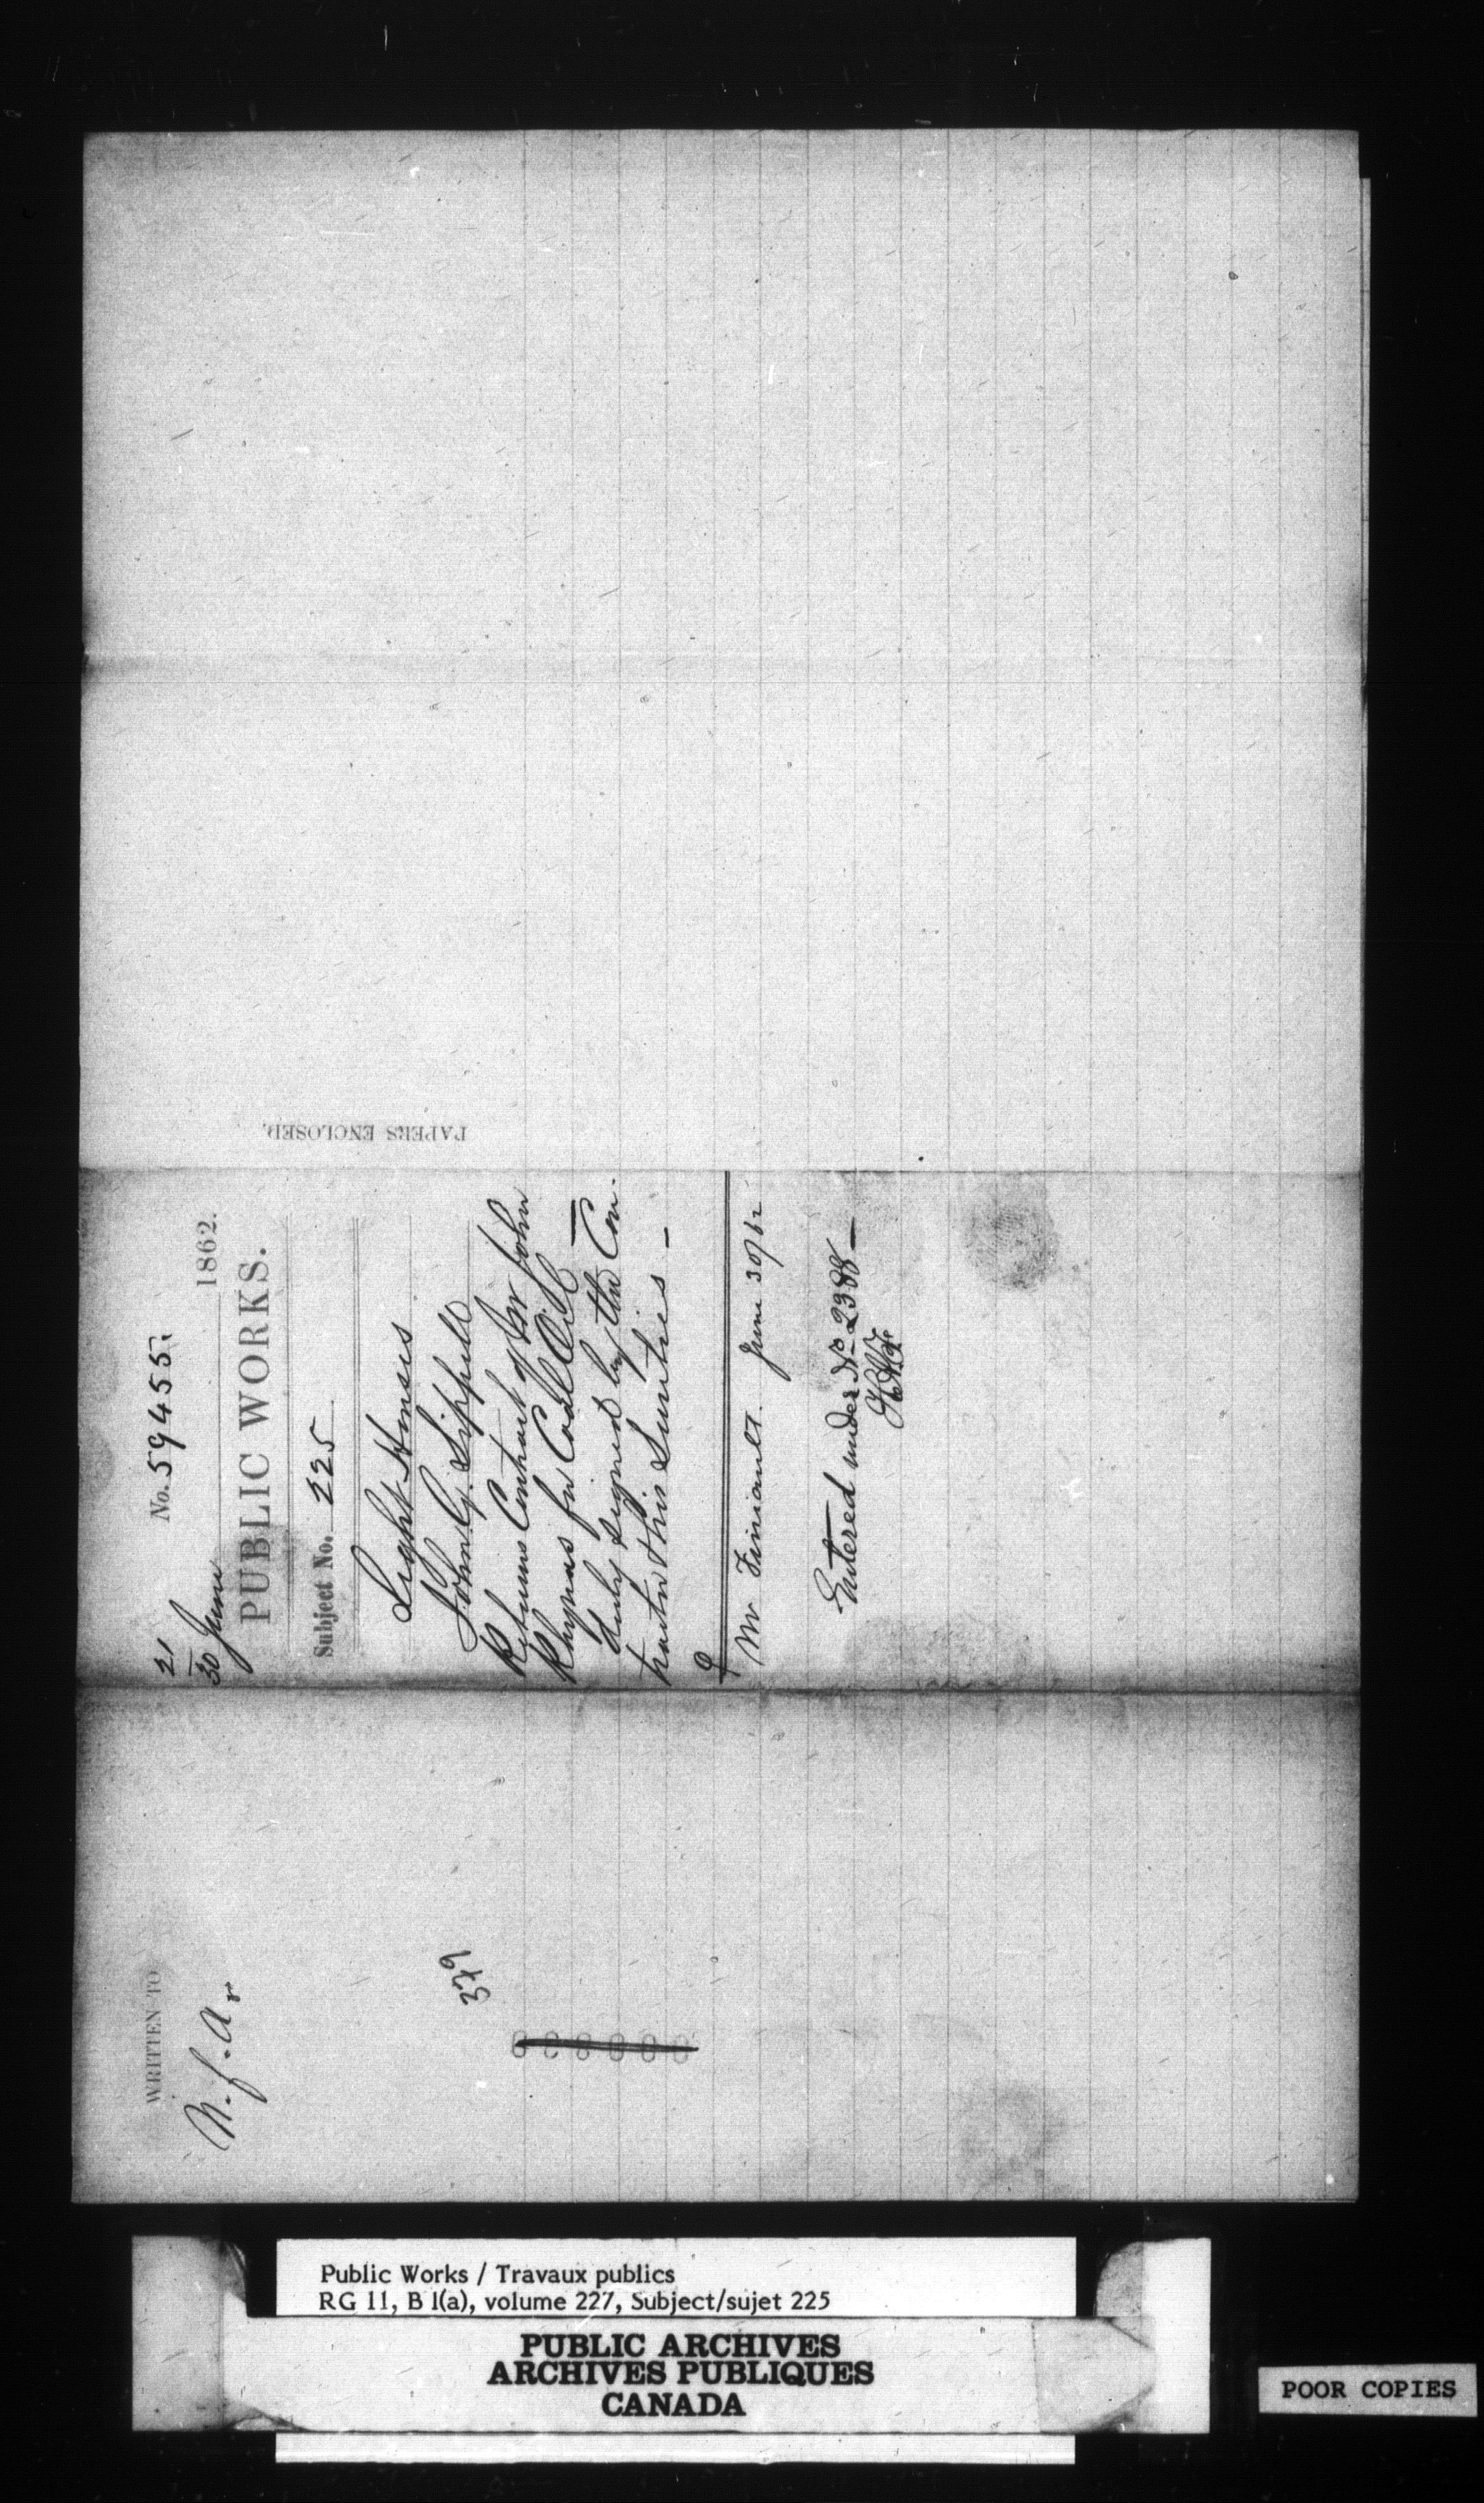 No. 59455.
21
30 June 1862.
PUBLIC WORKS.
Subject No. 225
Light Houses
John G. Sippell
Returns Contract of Mr John
Rhynas for Coal Oil —
duly signed by the Con-
tractor & his Sureties —
Mr Finiault. June 30/62
Entered under No 2388 —
PAPERS ENCLOSED.
WRITTEN TO
N.f.a.
329
Public Works / Travaux publics
RG 11, B 1(a), volume 227, Subject/sujet 225
PUBLIC ARCHIVES
ARCHIVES PUBLIQUES
CANADA
POOR COPIES